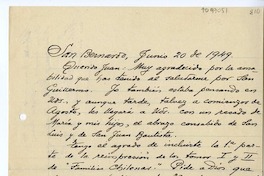 9097-51
San Bernardo, Junio 20 de 1949
Querido Juan: Muy agradecido por la ama-
bilidad que has tenido al saludarme por San
Guillermo. Yo también estaba pensando en
Uds. y aunque tarde, talvez a comienzos de
Agosto, les llegará a Uds. con un recado de
María y mis hijos, el abrazo consabido de San
Luis y de San Juan Bautista.
Tengo el agrado de incluirte la 1ª par-
te de la reimpresión de los tomos I y II
de "Familias Chilenas". Pide a Dios que